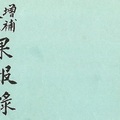 增補
果報錄